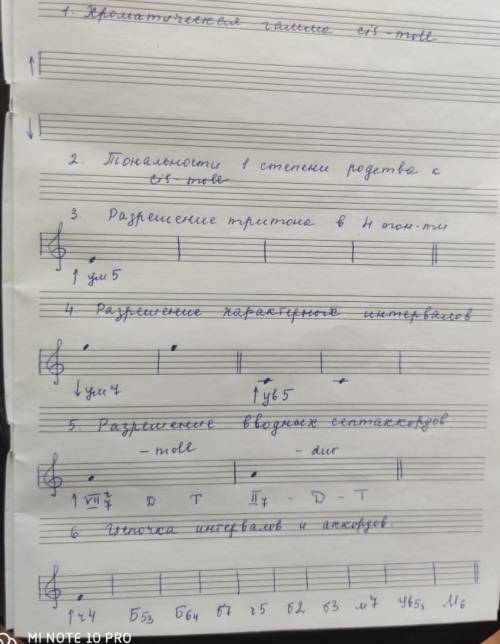 1. Хроматическая гамма cis-moll
↑
↓
2. Тональности 1 степени родства к
cis-moll
3. Разрешение тритона в 4 тон-ти
↑ ум5
4 Разрешение характерных интервалов
↓ум7 ↑ув5
5. Разрешение вводных септаккордов
-moll -dur
↑ VII7 D T II7 - D - T
6 Цепочка интервалов и аккордов.
↑ч4 Б53 Б64 б7 ч5 б2 б3 м7 Ув53 М6
MI NOTE 10 PRO